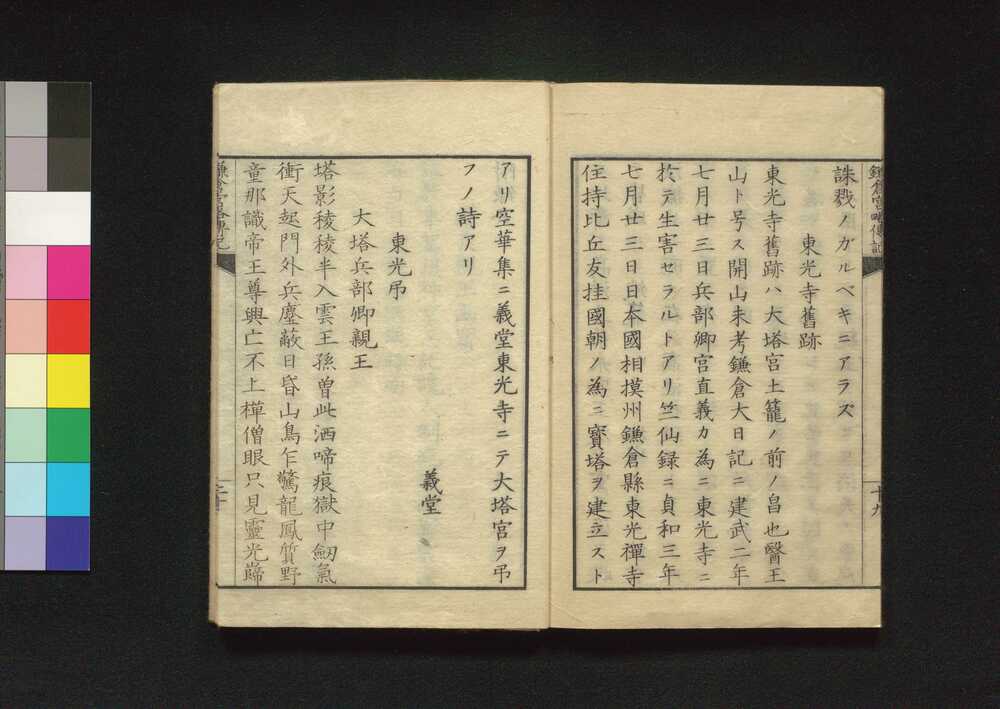 鎌倉宮略傳記
十九
誅戮ノガルベキニアラズ
東光寺舊跡
東光寺舊跡ハ大塔宮土籠ノ前ノ畠也醫王
山ト号ス開山未考鎌倉大日記ニ建武二年
七月廿三日兵部卿宮直義カ為ニ東光寺ニ
於テ生害セラルトアリ竺仙録ニ貞和三年
七月廿三日日本國相摸州鎌倉縣東光禪寺
住持比丘友挂國朝ノ為ニ寳塔ヲ建立スト
アリ空華集ニ義堂東光寺ニテ大塔宮ヲ吊
フノ詩アリ
東光吊
義堂
大塔兵部卿親王
塔影稜稜半入雲王孫曽此洒啼痕獄中劔氣
衝天起門外兵塵蔽日昏山鳥乍驚龍鳳質野
童那識帝王尊興亡不上禪僧眼只見靈光歸
鎌倉宮略傳記